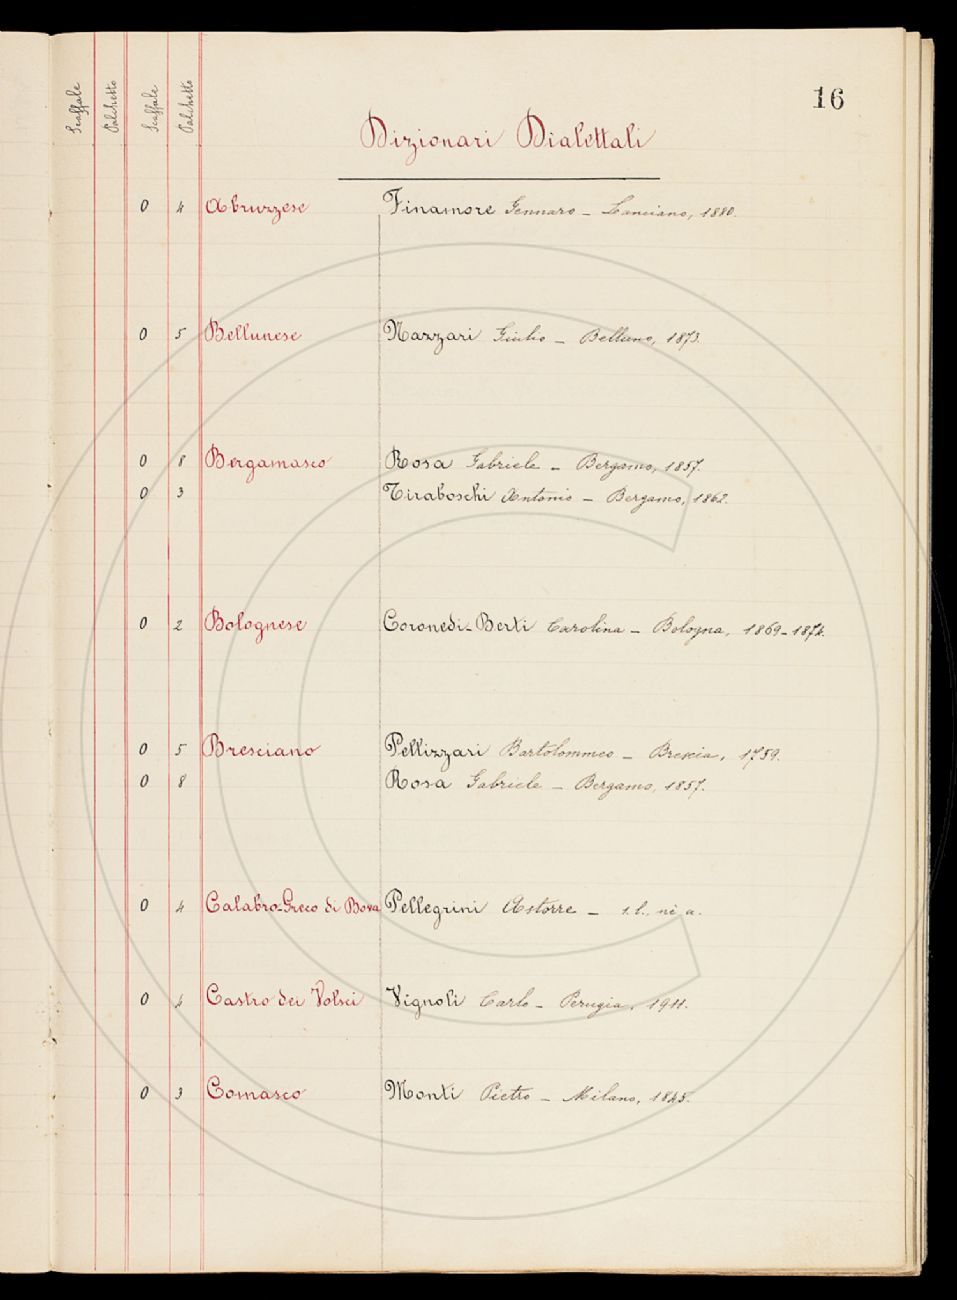 16
Scaffale Palchetto Scaffale Palchetto
Dizionari Dialettali
0 4 Abruzzese Finamore Gennaro – Lanciano, 1880.
0 5 Bellunese Nazzari Giulio – Belluno, 1873.
0 8 Bergamasco Rosa Gabriele – Bergamo, 1857.
0 3 Tiraboschi Antonio – Bergamo, 1862.
0 2 Bolognese Coronedi-Berti Carolina – Bologna, 1869-1874.
0 5 Bresciano Pellizzari Bartolommeo – Brescia, 1759.
0 8 Rosa Gabriele – Bergamo, 1857.
0 4 Calabro-Greco di Bova Pellegrini Astorre – s.l., nè a.
0 4 Castro dei Volsci Vignoli Carlo – Perugia, 1911.
0 3 Comasco Monti Pietro – Milano, 1845.